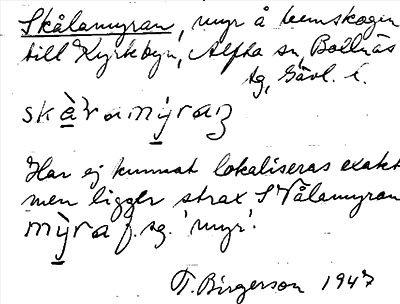 Skålamyran, myr å hemskogen
till Kyrkbyn, Alfta sn, Bollnäs
tg, Gävl. l.
skàlamỳraŋ
Har ej kunnat lokaliseras exakt
men ligger strax S Vålamyran
mỳra f. sg. 'myr'.
T. Birgerson 1947